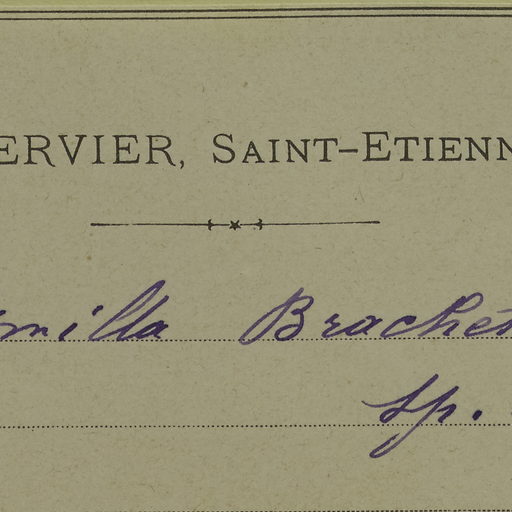 ERVIER, SAINT-ETIENN
milla Braché
sp.